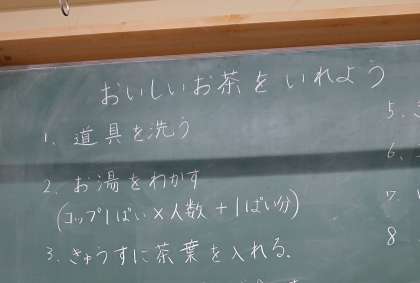 おいしいお茶をいれよう
1. 道具を洗う
2. お湯をわかす
(コップ1ぱい×人数+1ぱい分)
3. きゅうすに茶葉を入れる.
5.
6.
7
8